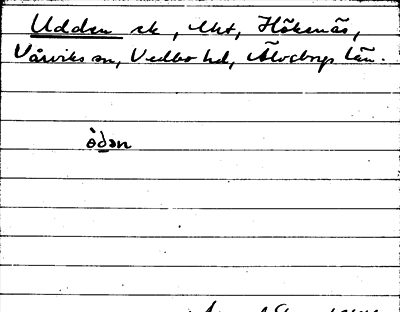 Udden sk, Mkt, Hökenäs,
Vårviks sn, Vedbo hd, Älvsborgs län.
òdən